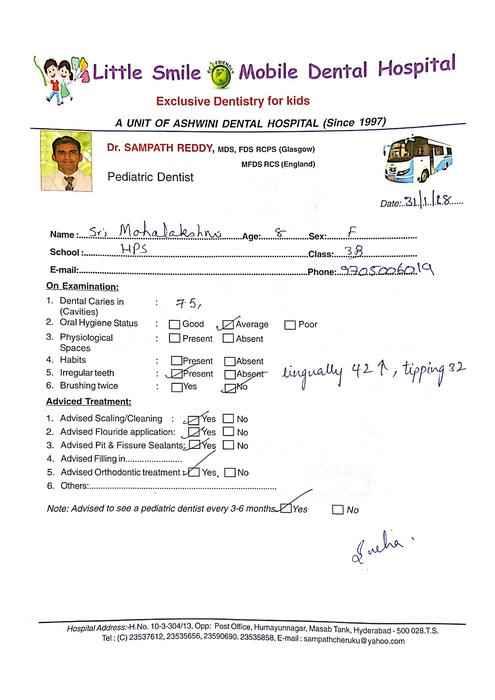 Little Smile Mobile Dental Hospital
Exclusive Dentistry for kids
A UNIT OF ASHWINI DENTAL HOSPITAL (Since 1997)
Dr. SAMPATH REDDY, MDS, FDS RCPS (Glasgow)
MFDS RCS (England)
Pediatric Dentist
Date: 31/1/
Name: Sri Mahalakshmi Age: 8 Sex: F
School: HPS Class: 3B
E-mail: Phone: 9705006019
On Examination:
1. Dental Caries in : 75,
(Cavities)
2. Oral Hygiene Status : Good Average Poor
3. Physiological : Present Absent
Spaces
4. Habits : Present Absent
5. Irregular teeth : Present Absent lingually 42 ↑, tipping 32
6. Brushing twice : Yes No
Adviced Treatment:
1. Advised Scaling/Cleaning : Yes No
2. Advised Flouride application: Yes No
3. Advised Pit & Fissure Sealants: Yes No
4. Advised Filling in
5. Advised Orthodontic treatment : Yes, No
6. Others:
Note: Advised to see a pediatric dentist every 3-6 months Yes No
Hospital Address:-H.No. 10-3-304/13, Opp: Post Office, Humayunnagar, Masab Tank, Hyderabad - 500 028.T.S.
Tel : (C) 23537612, 23535656, 23590690. 23535858, E-mail : sampathcheruku@yahoo.com